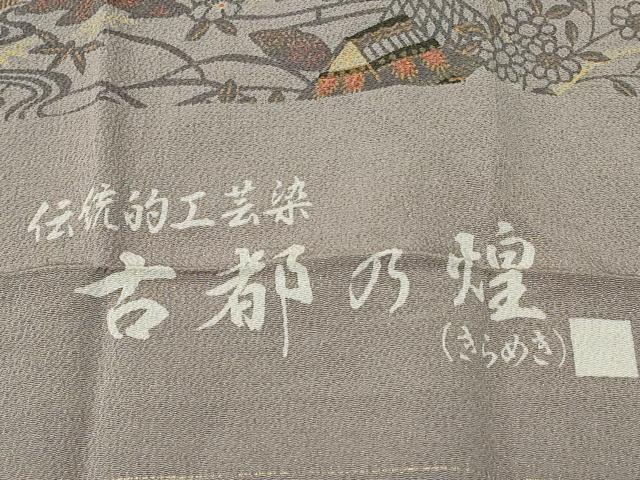 伝統的工芸染
古都乃煌
(きらめき)